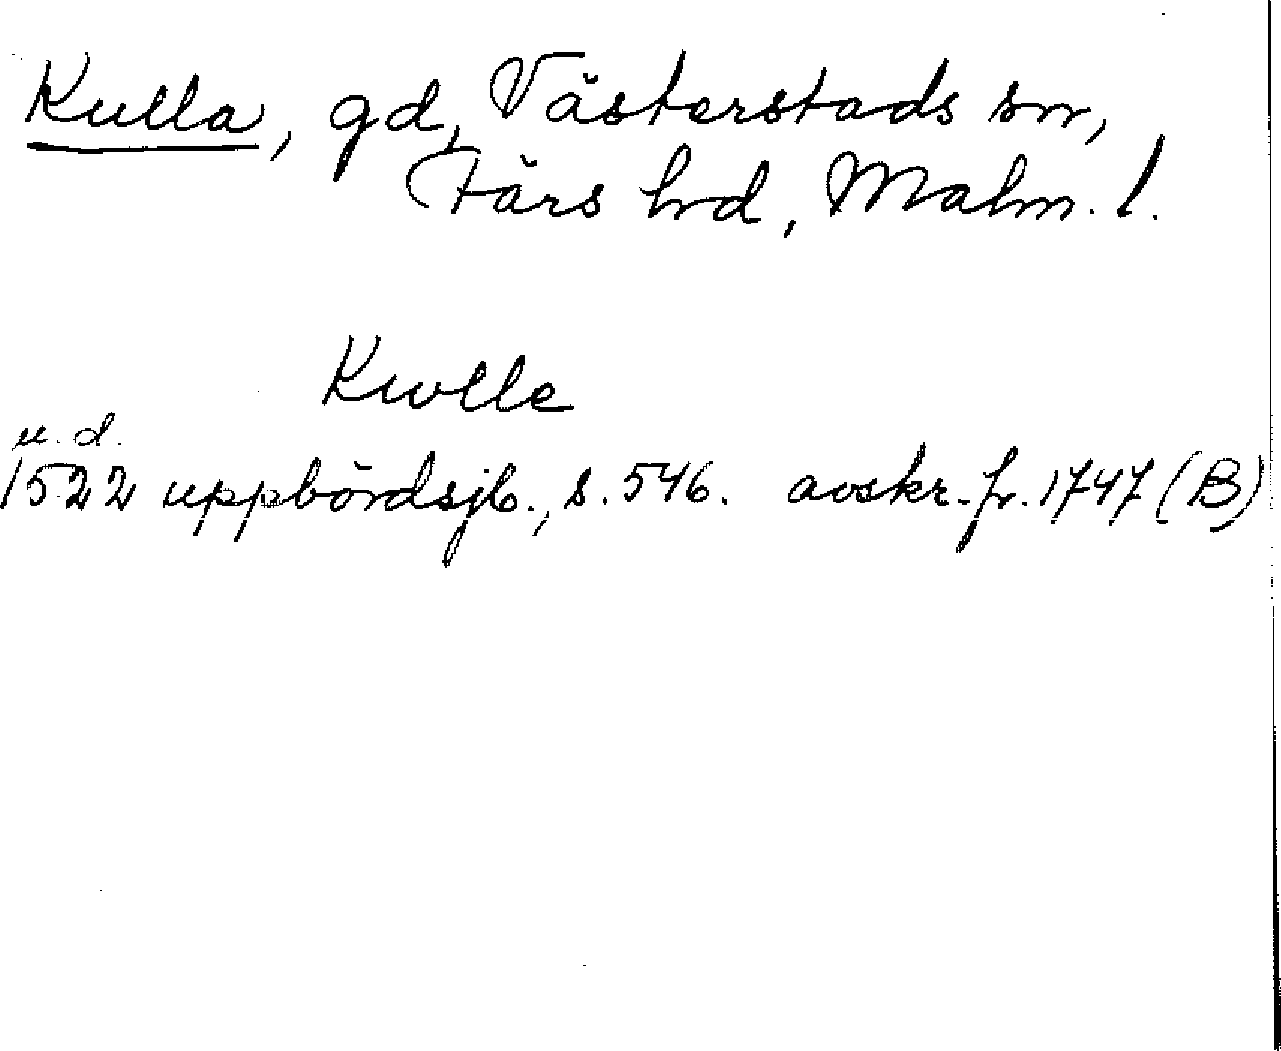 Kulla, gd, Västerstads sn,
Färs hd, Malm. l.
Kwlle
u. d.
1522 uppbördsjb., s. 546. avskr. fr. 1747 (B)